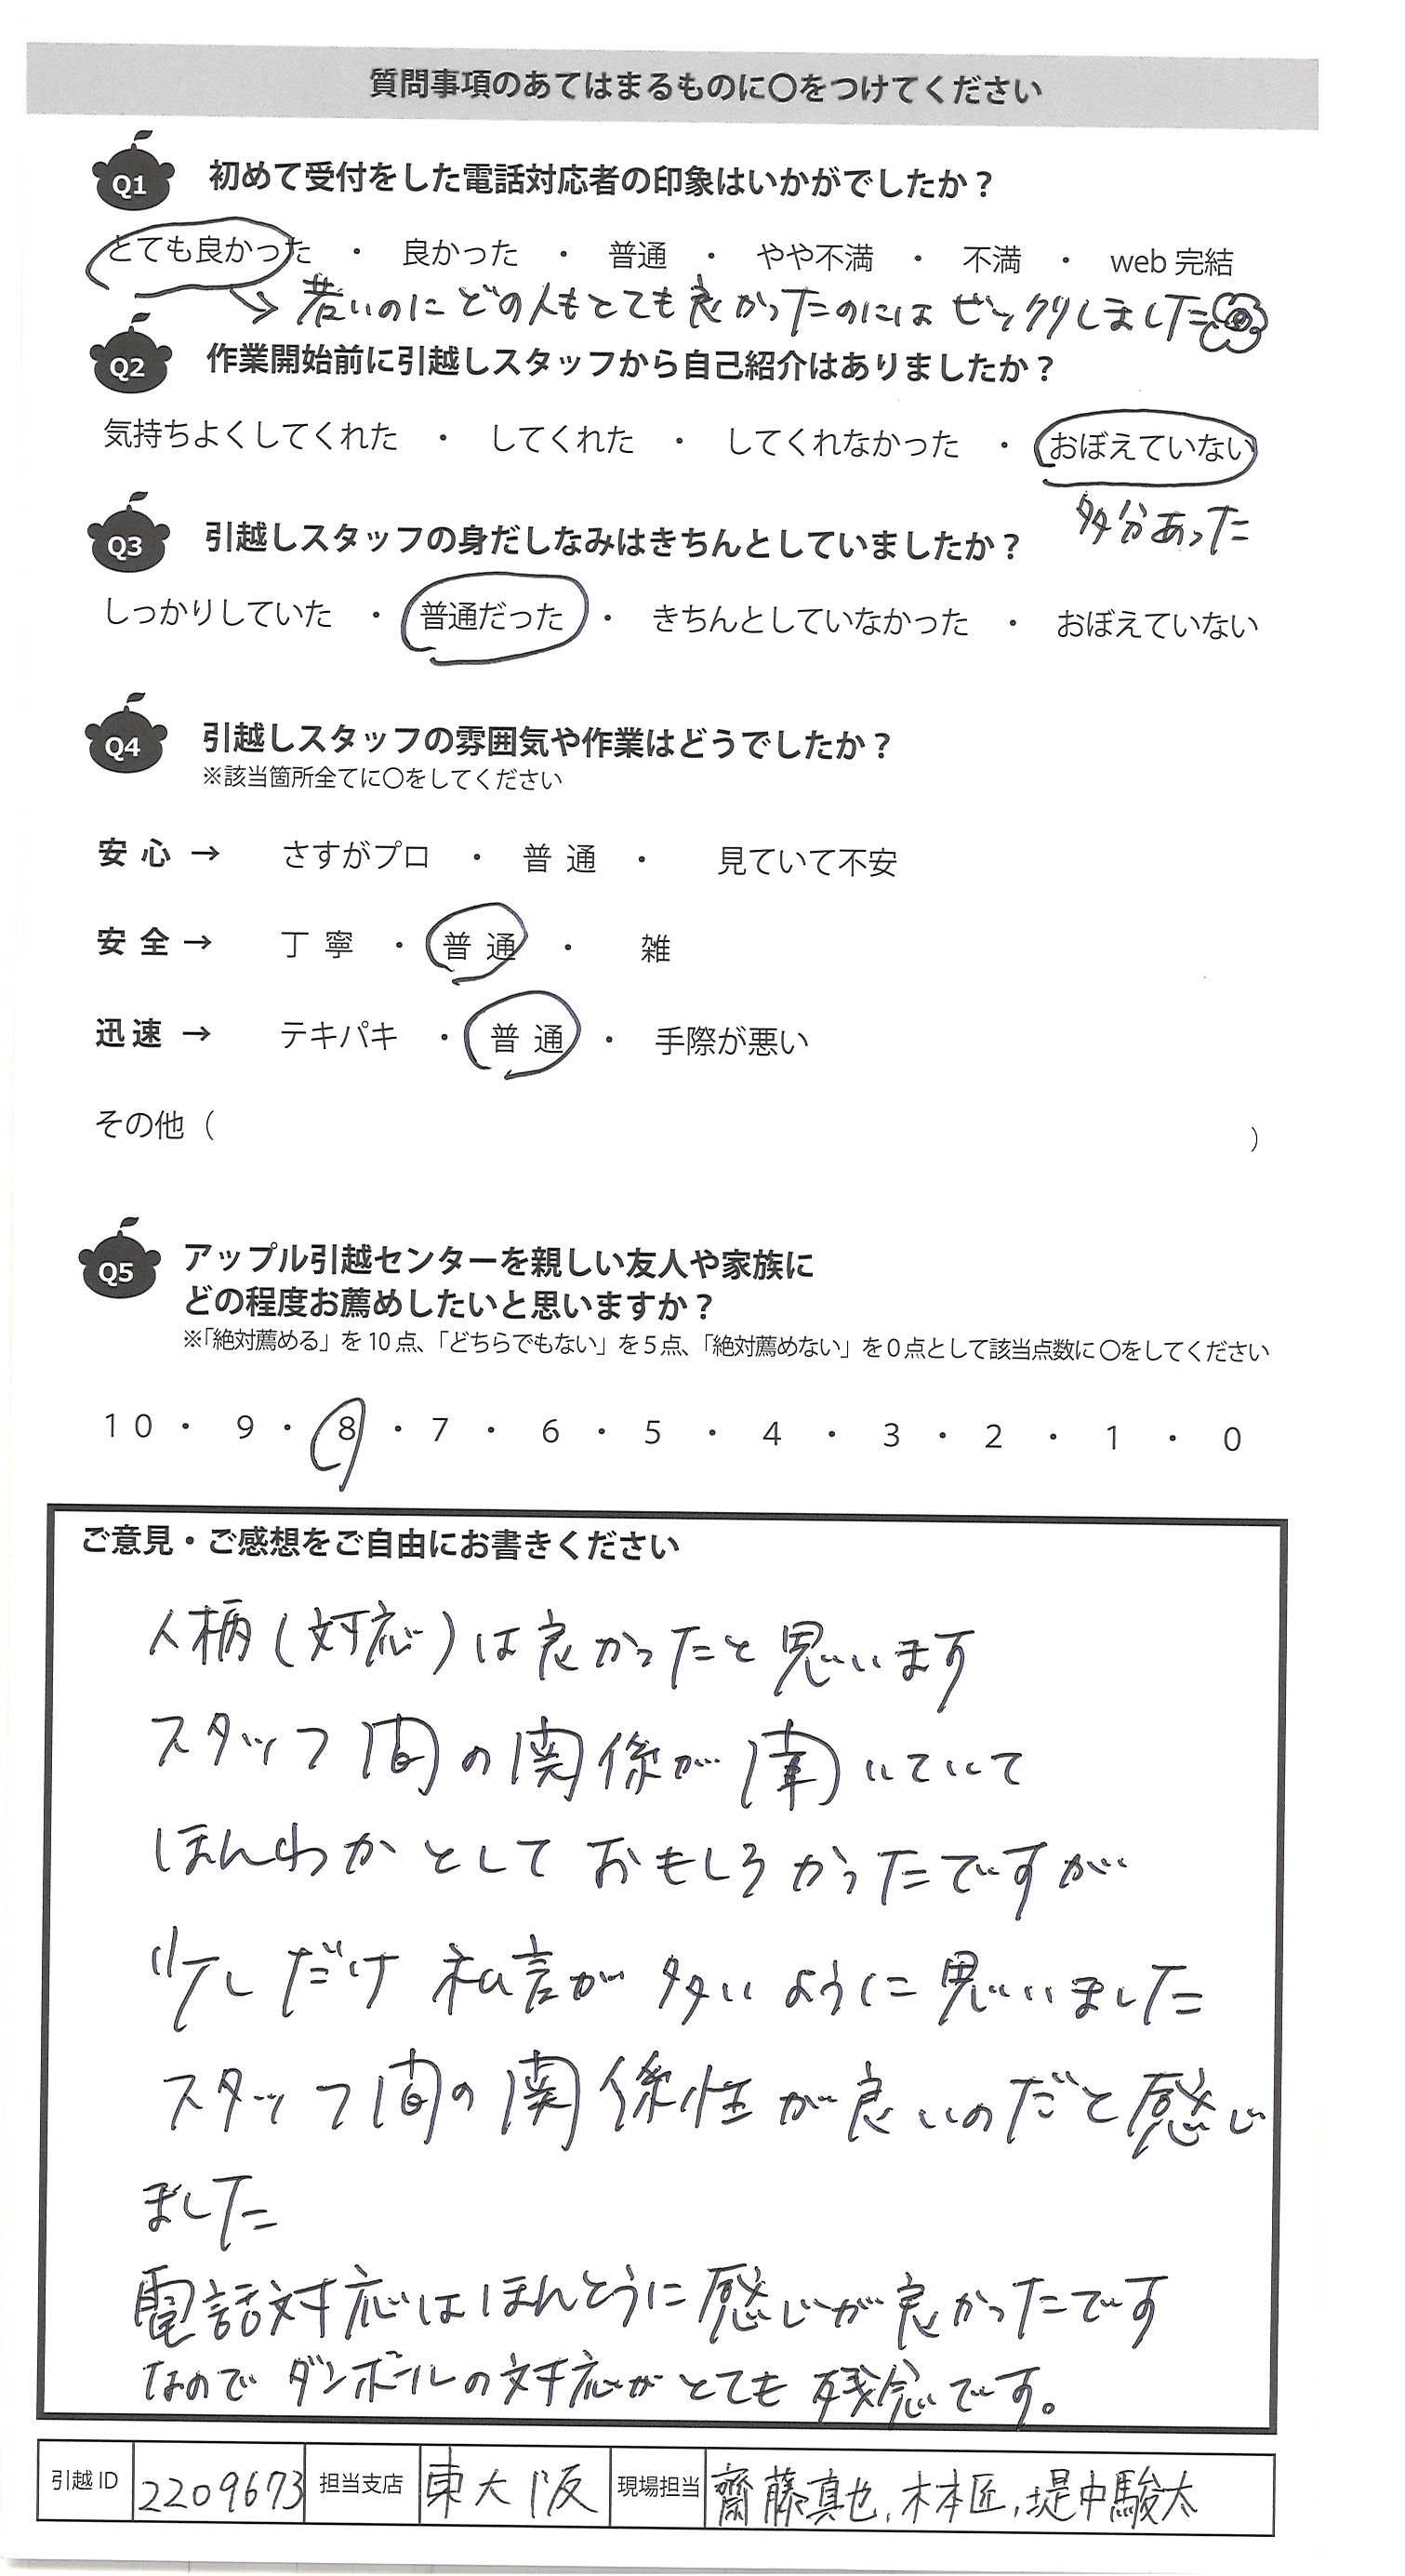 質問事項のあてはまるものに〇をつけてください
Q1 初めて受付をした電話対応者の印象はいかがでしたか？
とても良かった ・ 良かった ・ 普通 ・ やや不満 ・ 不満 ・ web完結
→ 若いのにどの人もとても良かったのにはビックリしました
Q2 作業開始前に引越しスタッフから自己紹介はありましたか？
気持ちよくしてくれた ・ してくれた ・ してくれなかった ・ おぼえていない
多分あった
Q3 引越しスタッフの身だしなみはきちんとしていましたか？
しっかりしていた ・ 普通だった ・ きちんとしていなかった ・ おぼえていない
Q4 引越しスタッフの雰囲気や作業はどうでしたか？
※該当箇所全てに〇をしてください
安心 → さすがプロ ・ 普通 ・ 見ていて不安
安全 → 丁寧 ・ 普通 ・ 雑
迅速 → テキパキ ・ 普通 ・ 手際が悪い
その他（ ）
Q5 アップル引越センターを親しい友人や家族に
どの程度お薦めしたいと思いますか？
※「絶対薦める」を10点、「どちらでもない」を5点、「絶対薦めない」を0点として該当点数に〇をしてください
10 ・ 9 ・ 8 ・ 7 ・ 6 ・ 5 ・ 4 ・ 3 ・ 2 ・ 1 ・ 0
ご意見・ご感想をご自由にお書きください
人柄(対応)は良かったと思います
スタッフ間の関係が いていて
ほんわかとしておもしろかったですが
少しだけ私言が多いように思いました
スタッフ間の関係性が良いのだと感じ
ました
電話対応はほんとうに感じが良かったです
なのでダンボールの対応がとても残念です。
引越ID 2209673 担当支店 東大阪 現場担当 齋藤真也、木本匠、堤中駿太